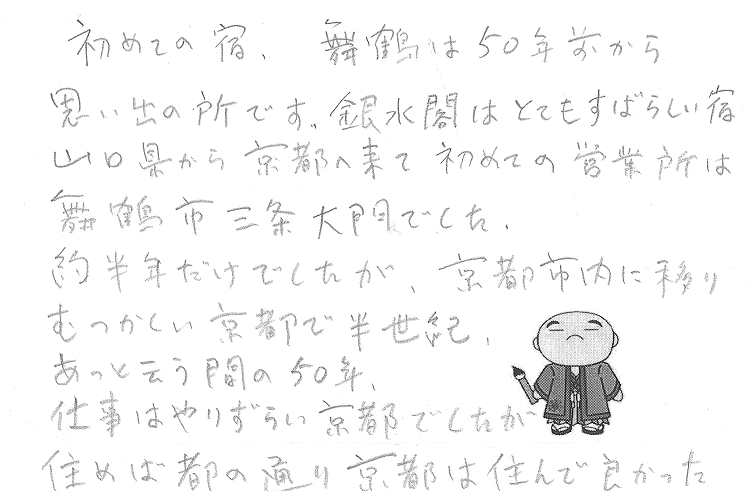 初めての宿、舞鶴は50年前から
思い出の所です。銀水閣はとてもすばらしい宿
山口県から京都へ来て初めての営業所は
舞鶴市三条大門でした。
約半年だけでしたが、京都市内に移り
むつかしい京都で半世紀、
あっと云う間の50年、
仕事はやりずらい京都でしたが
住めば都の通り京都は住んで良かった